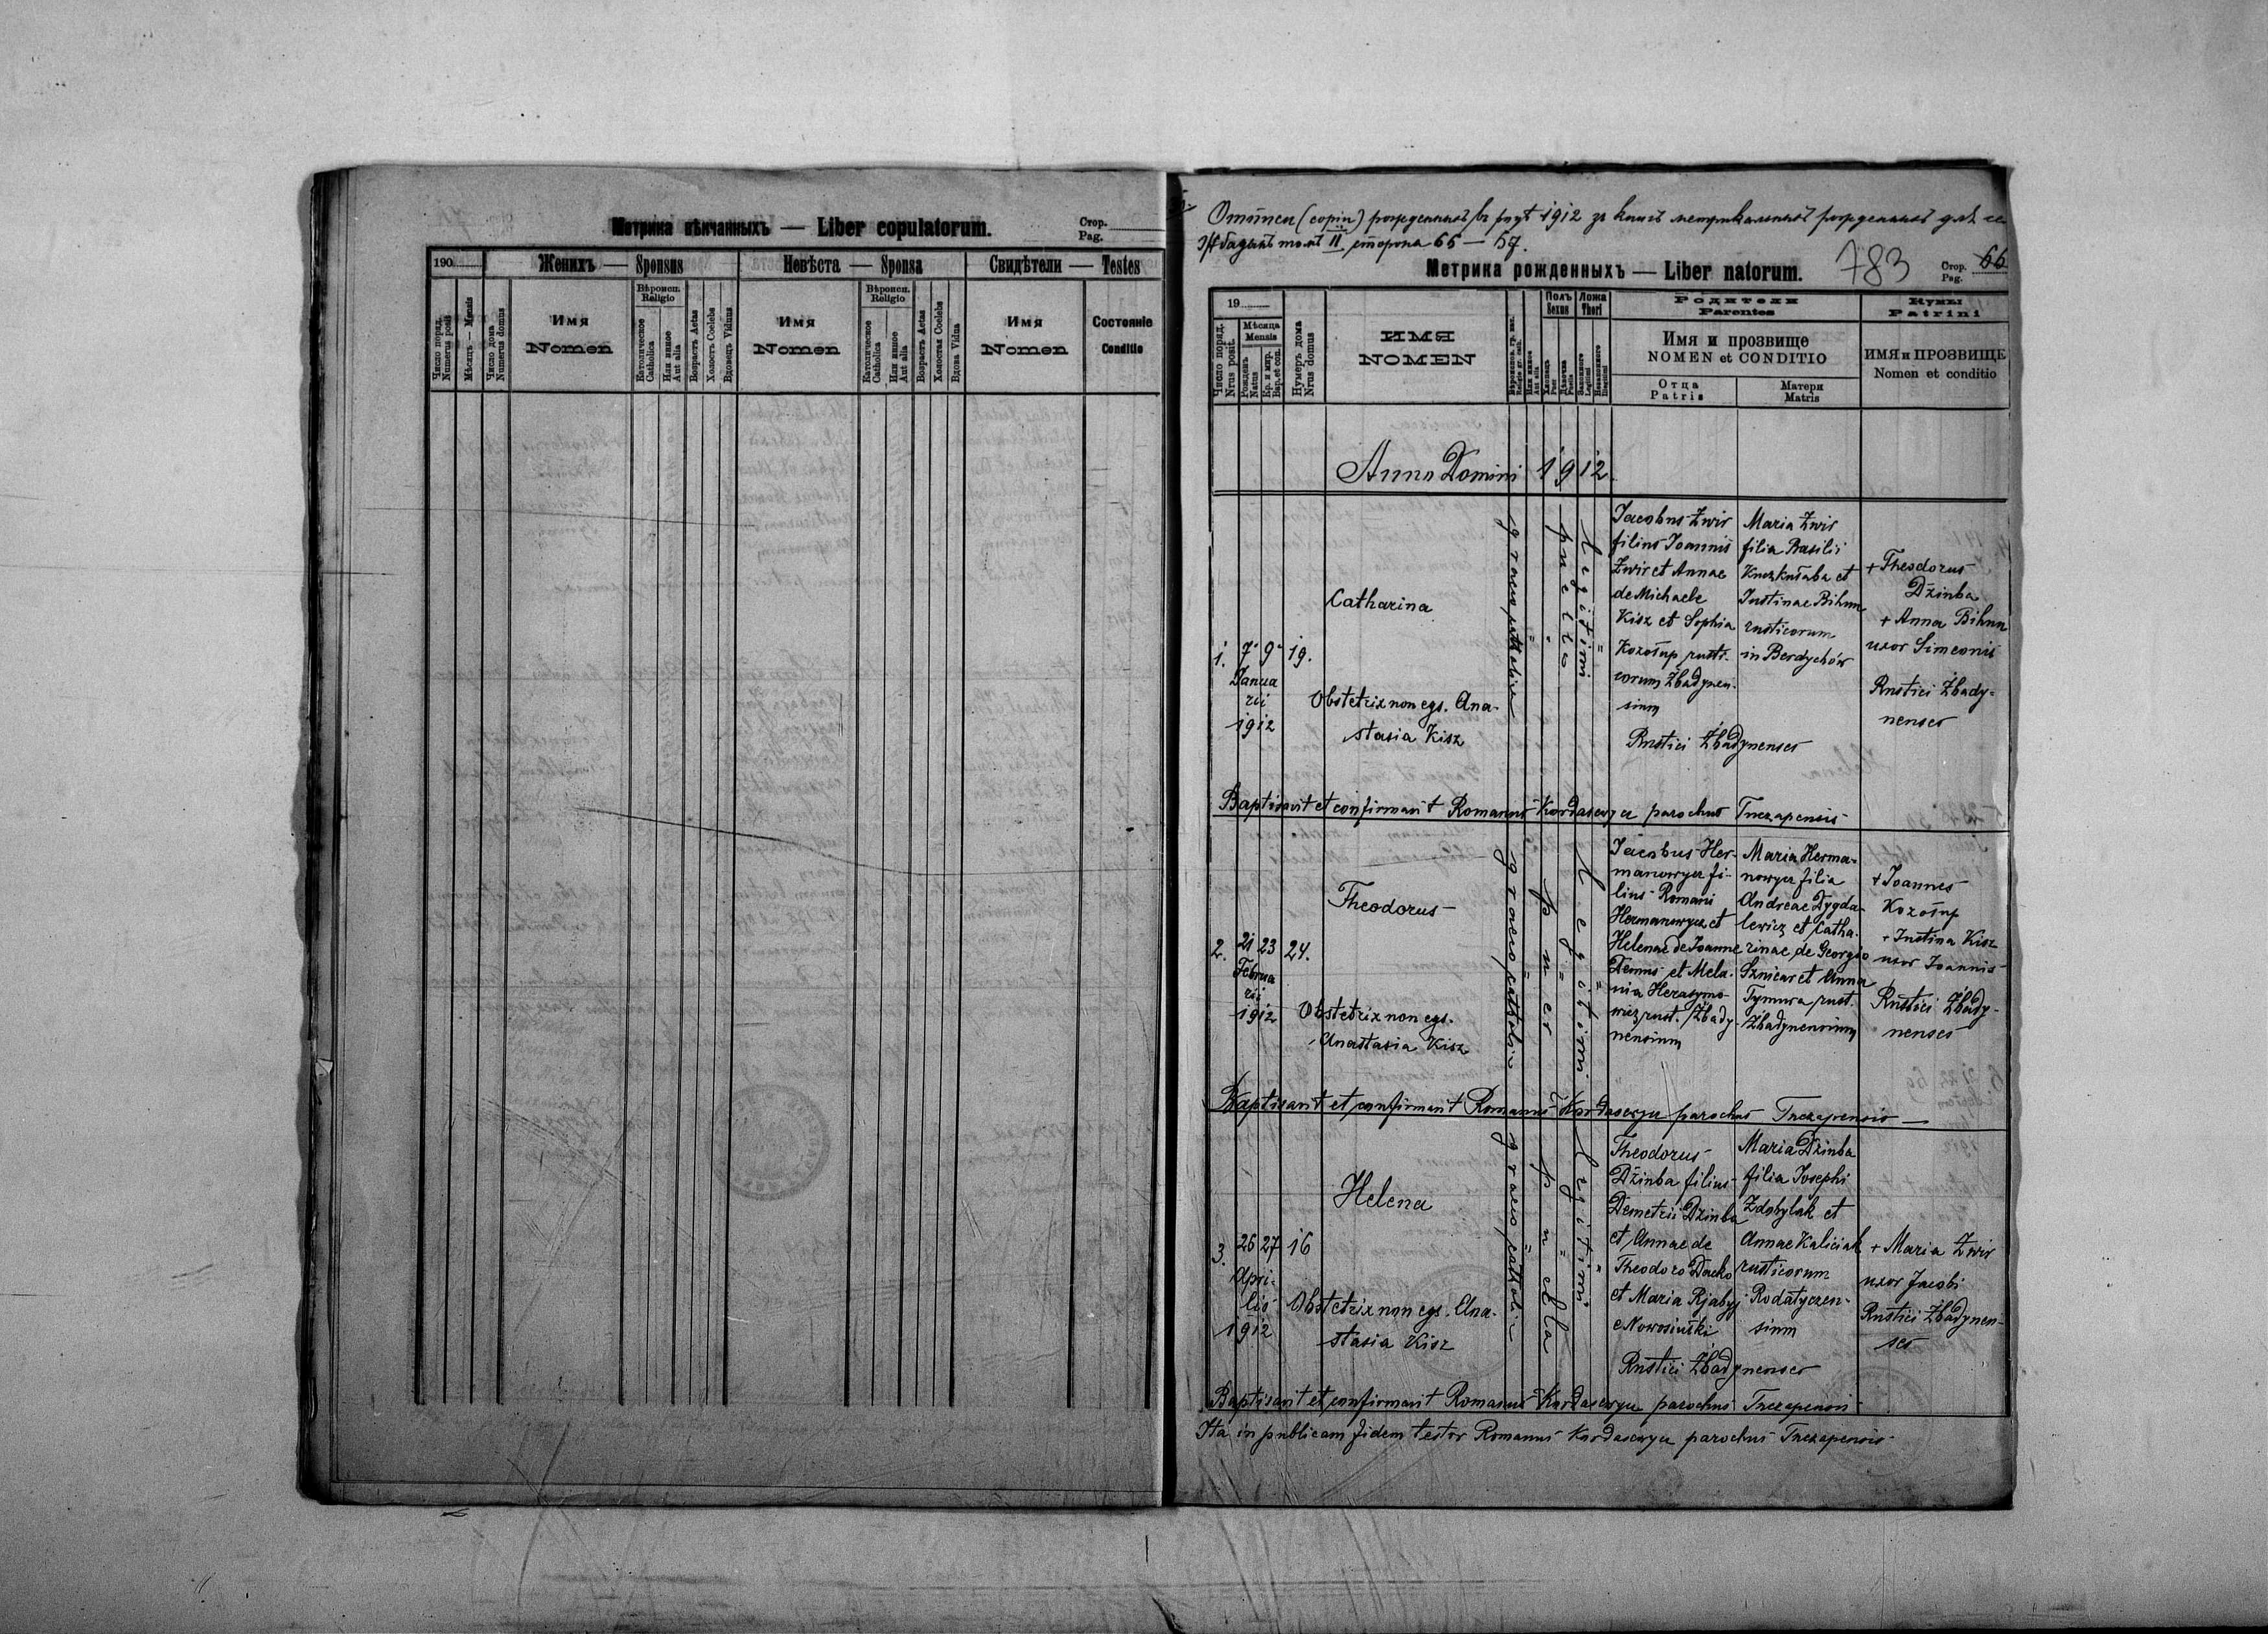 Метрика вѣнчанныхъ — Liber copulatorum.
Стор.
Pag.
190
Женихъ — Sponsus
Невѣста — Sponsa
Свидѣтели — Testes
Число поряд.
Numerus posit
Мѣсяцъ — Mensis
Число дома
Numerus domus
Имя
Nomen
Вѣроисп.
Religio
Католическое
Catholica
Или иное
Aut alia
Возрасть Aetas
Холость Coelebs
Вдовецъ Viduus
Имя
Nomen
Вѣроисп.
Religio
Католическое
Catholica
Или иное
Aut alia
Возрасть Aetas
Холостая Coelebs
Вдова Vidua
Имя
Nomen
Состояніе
Conditio
(copia) рожденныхъ въ 1912 зъ книгъ метрикальныхъ рожденныхъ для
томъ II сторона 66 — 67.
Метрика рожденныхъ — Liber natorum.
783
Стор.
Pag.
66
19
Число поряд.
Nrus posit.
Мѣсяца
Mensis
Рожденъ
Natus
Кр. и мир.
Bap. et con.
Нумеръ дома
Nrus domus
ИМЯ
NOMEN
Или иное
Aut alia
Полъ
Sexus
Хлопецъ
Puer
Дѣвочка
Puella
Ложа
Thori
Законного
Legitimi
Незаконного
Illegitimi
Родители
Parentes
Имя и прозвище
NOMEN et CONDITIO
Отца
Patris
Матери
Matris
Кумы
Patrini
ИМЯ и ПРОЗВИЩЕ
Nomen et conditio
Anno Domini 1912
1. 7 9 19.
Januarii
1912
Catharina
Obstetrix non egs. Ana-
stasia Kisz
graeco catholica
puella
Legitimi
Jacobus Żwir
filius Joannis
Żwir et Annae
de Michaele
Kisz et Sophia
Kozołup rusti-
corum Żbadynen-
sium
Maria Żwir
filia Basilii
et
Justinae Bihun
rusticorum
in Berdychów
Rustici Żbadynenses
+ Theodorus
Dżinba
+ Anna Bihun
uxor Simeonis
Rustici Żbady-
nenses
Baptisavit et confirmavit Romanus Kordasewycz parochus Tuczapensis
2. 21 23 24.
Februa
rii
1912
Theodorus
Obstetrix non egs.
Anastasia Kisz
graeco catholica
puer
Legitimi
Jacobus Her-
manowycz fi-
lius Romani
Hermanowycz et
Helenae de Joanne
Demus et Mela-
nia Herasymo-
wicz rust. Żbady-
nensium
Maria Herma-
nowycz filia
Andreae Dygda-
lewicz et Catha-
rinae de Georgio
Sznicar et Anna
Tymura rust.
Żbadynensium
+ Joannes
Kozołup
+ Justina Kisz
uxor Joannis
Rustici Żbady-
nenses
Baptisavit et confirmavit Romanus Kordasewycz parochus Tuczapensis —
3. 26 27 16
Apri-
lis
1912
Helena
Obstetrix non egs. Ana-
stasia Kisz
graeco catholica
puella
Legitimi
Theodorus
Dżinba filius
Demetrii Dżinba
et Annae de
Theodoro Dacko
et Maria Rjabyj
e Nowosiułki
Maria Dżinba
filia Josephi
Zdobylak et
Annae Kaliciak
rusticorum
Rodatyczen-
sium
Rustici Żbadynenses
+ Maria Żwir
uxor Jacobi
Rustici Żbadynen-
ses
Baptisavit et confirmavit Romanus Kordasewycz parochus Tuczapensis
Ita in publicam fidem testor Romanus Kordasewycz parochus Tuczapensis